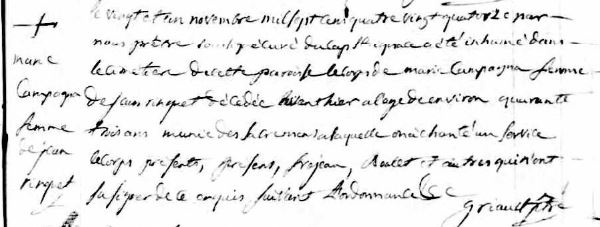 le vingt et un novembre mil sept cens quatre vingt quatorze par
nous prêtre soussigné curé du cap st ignace a été inhumé dans
le cimetiere de cette paroisse le corps de marie Campagna femme
de jean ringuet décédée avant hier a lage de environ quarante
trois ans munie des sacremens a laquelle on a chanté un service
le corps présents, presens, frejean, Boulet et autres qui n'ont
su signer de ce enquis suivant l'ordonnance &c
griault ptre
marie
Campagna
femme
de jean
ringuet